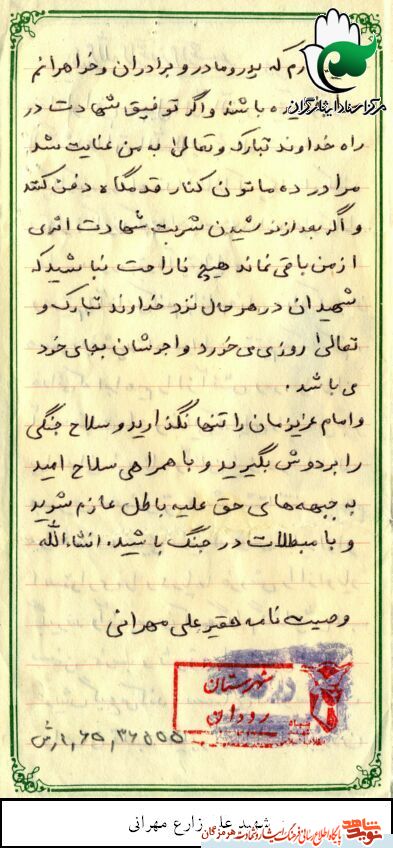 مرکز اسناد ایثارگران
که پدر و مادر و برادران و خواهرانم
باشند و اگر توفیق شهادت در
راه خداوند تبارک و تعالی به من عنایت شد
مرا در ده ماتون کنار قدمگاه دفن کنند
و اگر بعد از نوشیدن شربت شهادت اثری
از من باقی نماند هیچ ناراحت نباشید که
شهیدان در هر حال نزد خداوند تبارک و
تعالی روزی می خورد و اجرشان بجای خود
می باشد.
و امام عزیزمان را تنها نگذارید و سلاح جنگی
را بر دوش بگیرید و با همراهی سلاح امید
به جبهه های حق علیه باطل عازم شوید
و با مبطلات در جنگ باشید. انشاءالله
وصیت نامه حقیر علی مهرانی
شهرستان
رودان
شهید علی زارع مهرانی
نوید شاهد
پایگاه اطلاع رسانی فرهنگ ایثار و شهادت هرمزگان